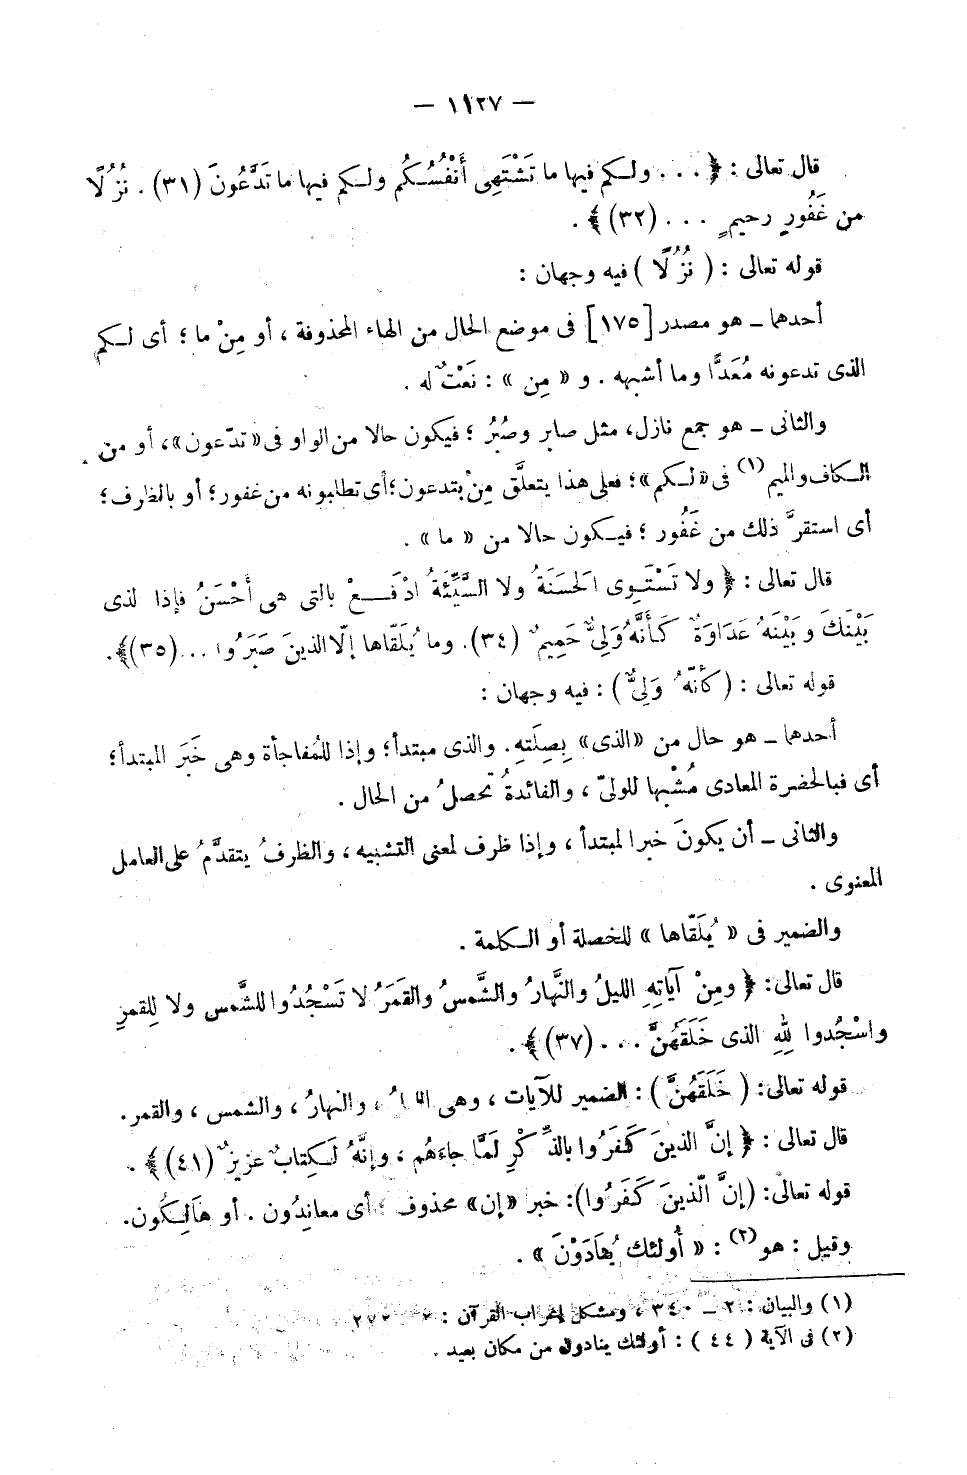 — ١١٢٧ —
قال تعالى : ﴿ . . . ولكم فيها ما تَشْتَهِى أَنْفُسُكُم ولكم فيها ما تَدَّعُونَ (٣١) . نُزُلًا
من غَفُورٍ رحيمٍ . . . (٣٢) ﴾ .
قوله تعالى : ( نُزُلًا ) فيه وجهان :
أحدهما ــ هو مصدر [١٧٥] فى موضع الحال من الهاء المحذوفة ، أو مِنْ ما ؛ أى لكم
الذى تدعونه مُعَدًّا وما أشبهه . و « مِن » : نَعْتٌ له .
والثانى ــ هو جمع نازل، مثل صابر وصُبُر ؛ فيكون حالا من الواو فى «تدّعون» ، أو من
الكاف والميم (١) فى «لكم» ؛ فعلى هذا يتعلَّق مِنْ بتدعون ؛ أى تطلبونه من غفور ؛ أو بالظرف ؛
أى استقرَّ ذلك من غَفُور ؛ فيكون حالا من « ما » .
قال تعالى : ﴿ ولا تَسْتَوِى الحسَنَةُ ولا السَّيِّئَةُ ادْفَعْ بالتى هى أَحْسَنُ فإذا لذى
بَيْنَكَ وبَيْنَهُ عَدَاوَةٌ كَأَنَّهُ وَلِىٌّ حَمِيمٌ (٣٤). وما يُلَقّاها إلّا الذينَ صَبَرُوا . . . (٣٥)﴾.
قوله تعالى : ( كأنّهُ وَلِىٌّ ) : فيه وجهان :
أحدهما ــ هو حال من «الذى» بِصِلَتِهِ. والذى مبتدأ ؛ وإذا للمُفاجأة وهى خَبَر المبتدأ ؛
أى فبالحضرة المعادى مُشْبها للولىّ ، والفائدةُ تحصلُ من الحال .
والثانى ــ أن يكونَ خبرا لمبتدأ ، وإذا ظرف لمعنى التشبيه ، والظرفُ يتقدَّمُ على العامل
المعنوى .
والضمير فى « يُلَقّاها » للخصلة أو الكلمة .
قال تعالى: ﴿ ومِنْ آياتِهِ الليلُ والنَّهارُ والشَّمسُ والقَمَرُ لا تَسْجُدُوا للشَّمس ولا لِلقمرِ
واسْجُدوا لِلهِ الذى خَلَقَهُنَّ . . . (٣٧) ﴾ .
قوله تعالى: ( خَلَقَهُنَّ ) : الضمير للآيات ، وهى ، والنهارُ ، والشمس ، والقمر .
قال تعالى : ﴿ إنَّ الذينَ كَفَرُوا بالذِّكْرِ لَمَّا جاءَهُم ، وإنَّهُ لَكِتابٌ عزيزٌ (٤١) ﴾ .
قوله تعالى: (إنَّ الّذينَ كَفَرُوا): خبر «إن» محذوف ؛ أى معانِدُون . أو هَالِكُون.
وقيل : هو (٢) : « أُولئك يُهَادَوْنَ » .
(١) والبيان : ٢ ــ ٣٤٠ ، ومشكل إعراب القرآن :
(٢) فى الآية ( ٤٤ ) : أولئك ينادون من مكان بعيد .